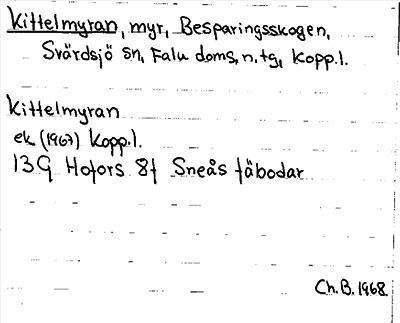 Kittelmyran, myr, Besparingsskogen,
Svärdsjö sn, Falu doms. n. tg, Kopp. l.
Kittelmyran
ek (1967) Kopp. l.
13G Hofors 8f Sneås fäbodar
Ch. B. 1968.